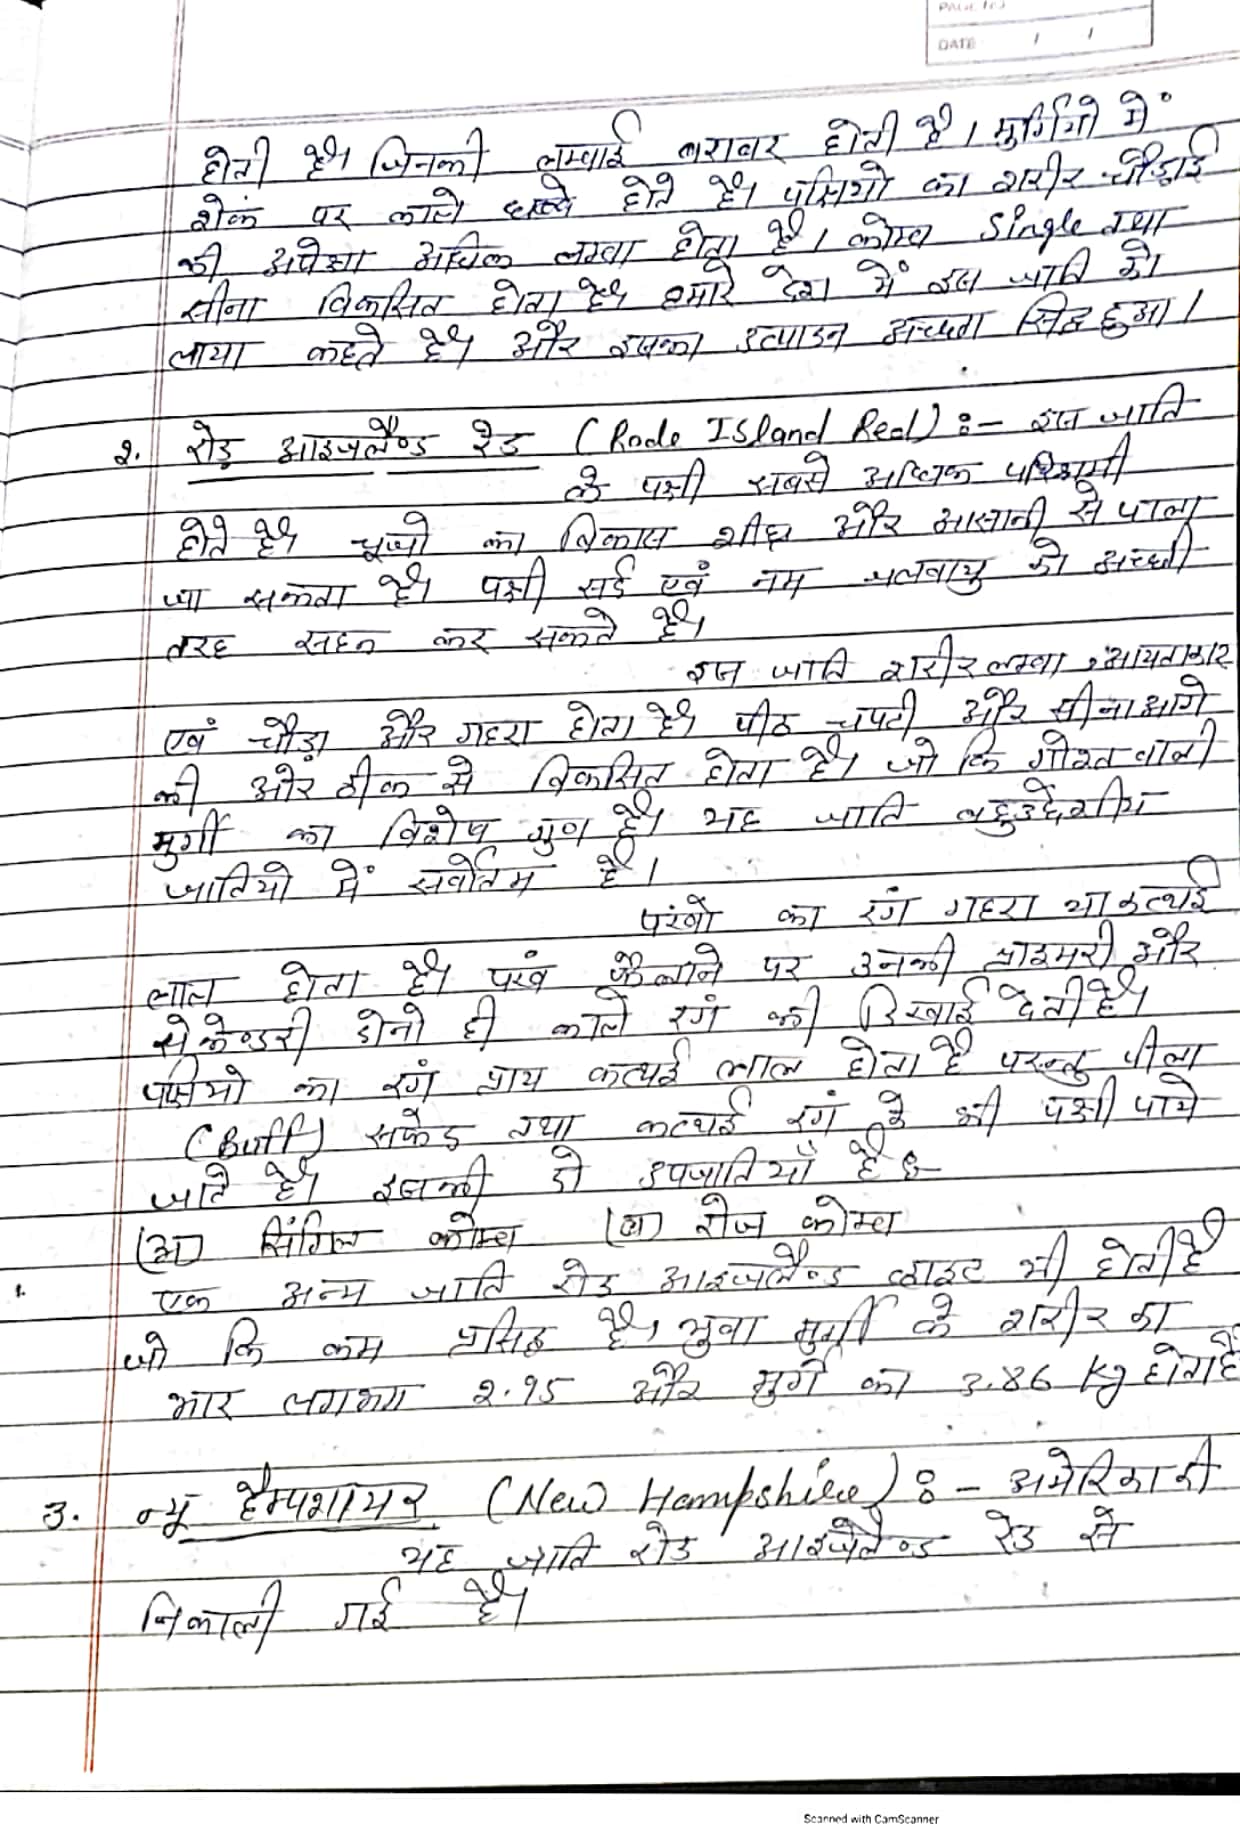 PAGE NO.
DATE / /
होती है। जिनकी लम्बाई बराबर होती है। मुर्गियो मे
शंक पर काले धब्बे होते है। पक्षियो का शरीर चौड़ाई
की अपेक्षा अधिक लम्बा होता है। कोम्ब Single तथा
सीना विकसित होता है। हमारे देश में इस जाति को
लाया कहते है। और इसका उत्पादन अच्छा सिद्ध हुआ।
2. रोड आइजलैण्ड रेड (Rode Island Red) :- इस जाति
के पक्षी सबसे अधिक परिश्रमी
होते है। चूजो का विकास शीघ्र और आसानी से पाला
जा सकता है। पक्षी सर्द एवं नम जलवायु को अच्छी
तरह सहन कर सकते है।
इस जाति शरीर लम्बा, आयताकार
एवं चौड़ा और गहरा होता है। पीठ चपटी और सीना आगे
की ओर ठीक से विकसित होता है। जो कि गोश्त वाली
मुर्गी का विशेष गुण है। यह जाति बहुउद्देशीय
जातियो में सर्वोतम है।
पंखो का रंग गहरा या कत्थई
लाल होता है। पंख फैलाने पर उनकी प्राइमरी और
सेकेण्डरी दोनो ही काले रंग की दिखाई देती है।
पक्षियो का रंग प्राय कत्थई लाल होता है परन्तु पीला
(Buff) सफेद तथा कत्थई रंग के भी पक्षी पाये
जाते है। इसकी दो उपजातियाँ है :-
(अ) सिंगिल कोम्ब (ब) रोज कोम्ब
एक अन्य जाति रोड आइजलैण्ड व्हाइट भी होती है
जो कि कम प्रसिद्ध है। युवा मुर्गी के शरीर का
भार लगभग 2.95 और मुर्गे का 3.86 Kg होता है
3. न्यू हैम्पशायर (New Hampshire) :- अमेरिका की
यह जाति रोड आइजेलैण्ड रेड से
निकाली गई है।
Scanned with CamScanner